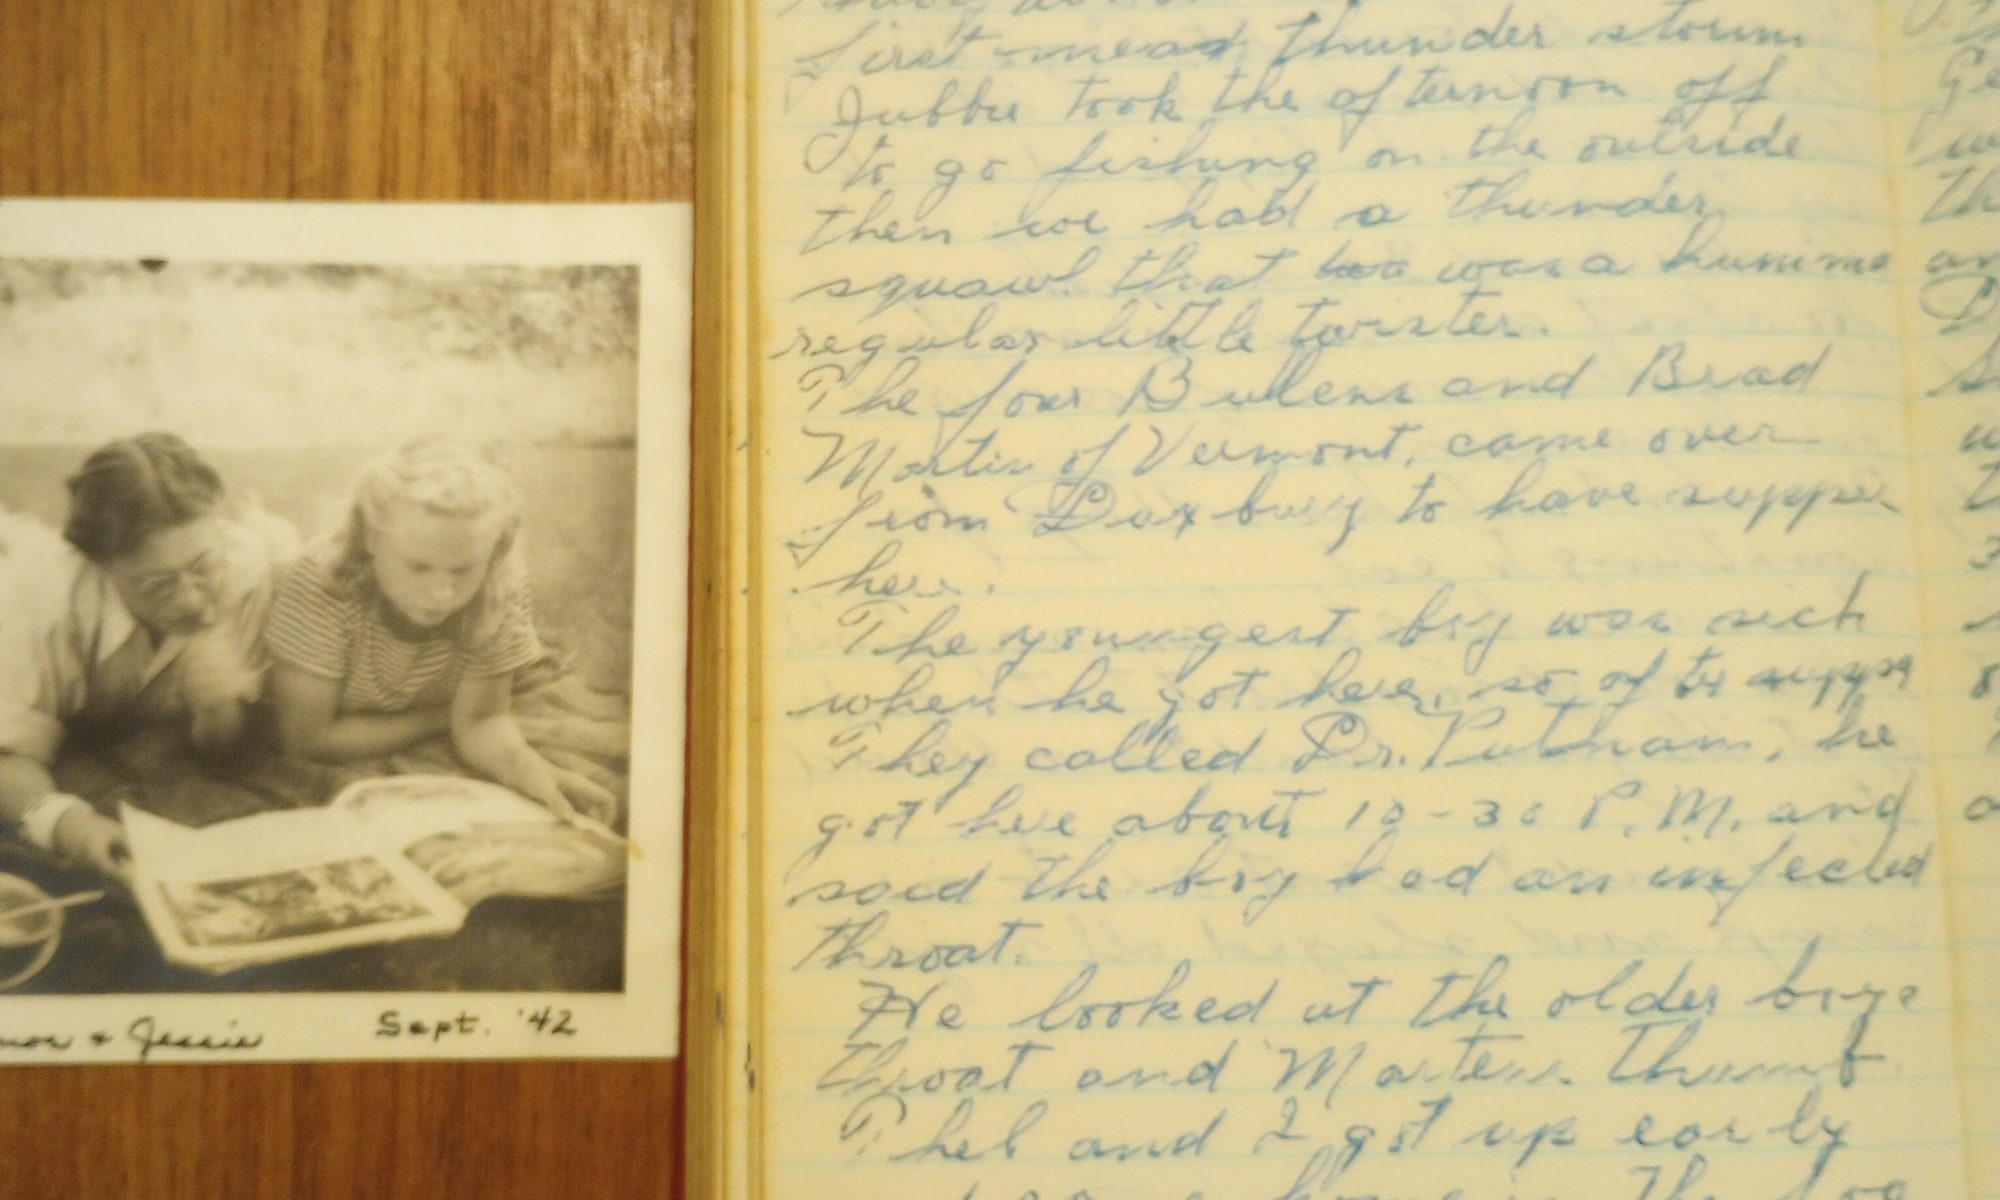 first mean thunder storm
Jubbie took the afternoon off
to go fishing on the outside
then we had a thunder
squawl that was a humme
regular little twister.
The four Bulens and Brad
Martin of Vermont, came over
from Duxbury to have supper
here.
The youngest boy was sick
when he got here, so of to
They called Dr. Putnam, he
got here about 10-30 P.M. and
said the boy had an infected
throat.
He looked at the older boys
throat and Martens thumb
Thel and I got up early
home in the fog
& Jessie Sept. '42